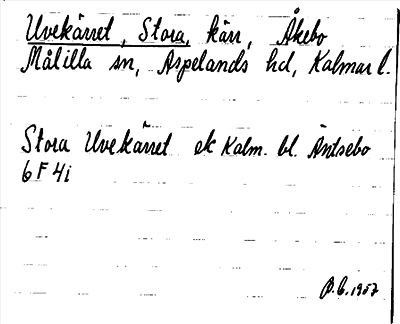 Uvekärret, Stora, kärr, Åkebo
Målilla sn, Aspelands hd, Kalmar l.
Stora Uvekärret ek Kalm. bl. Äntsebo
6 F 4i
B.C. 1957